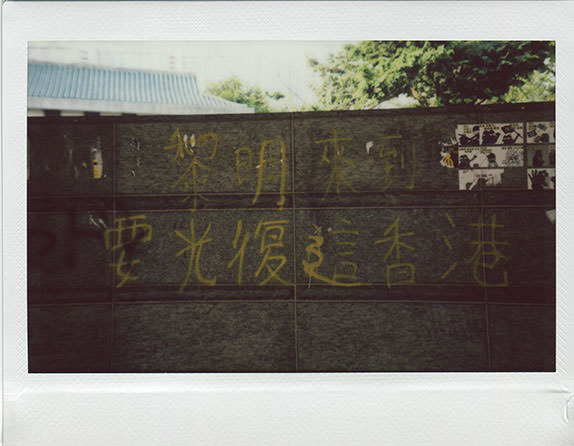 黎明來到
要光復這香港